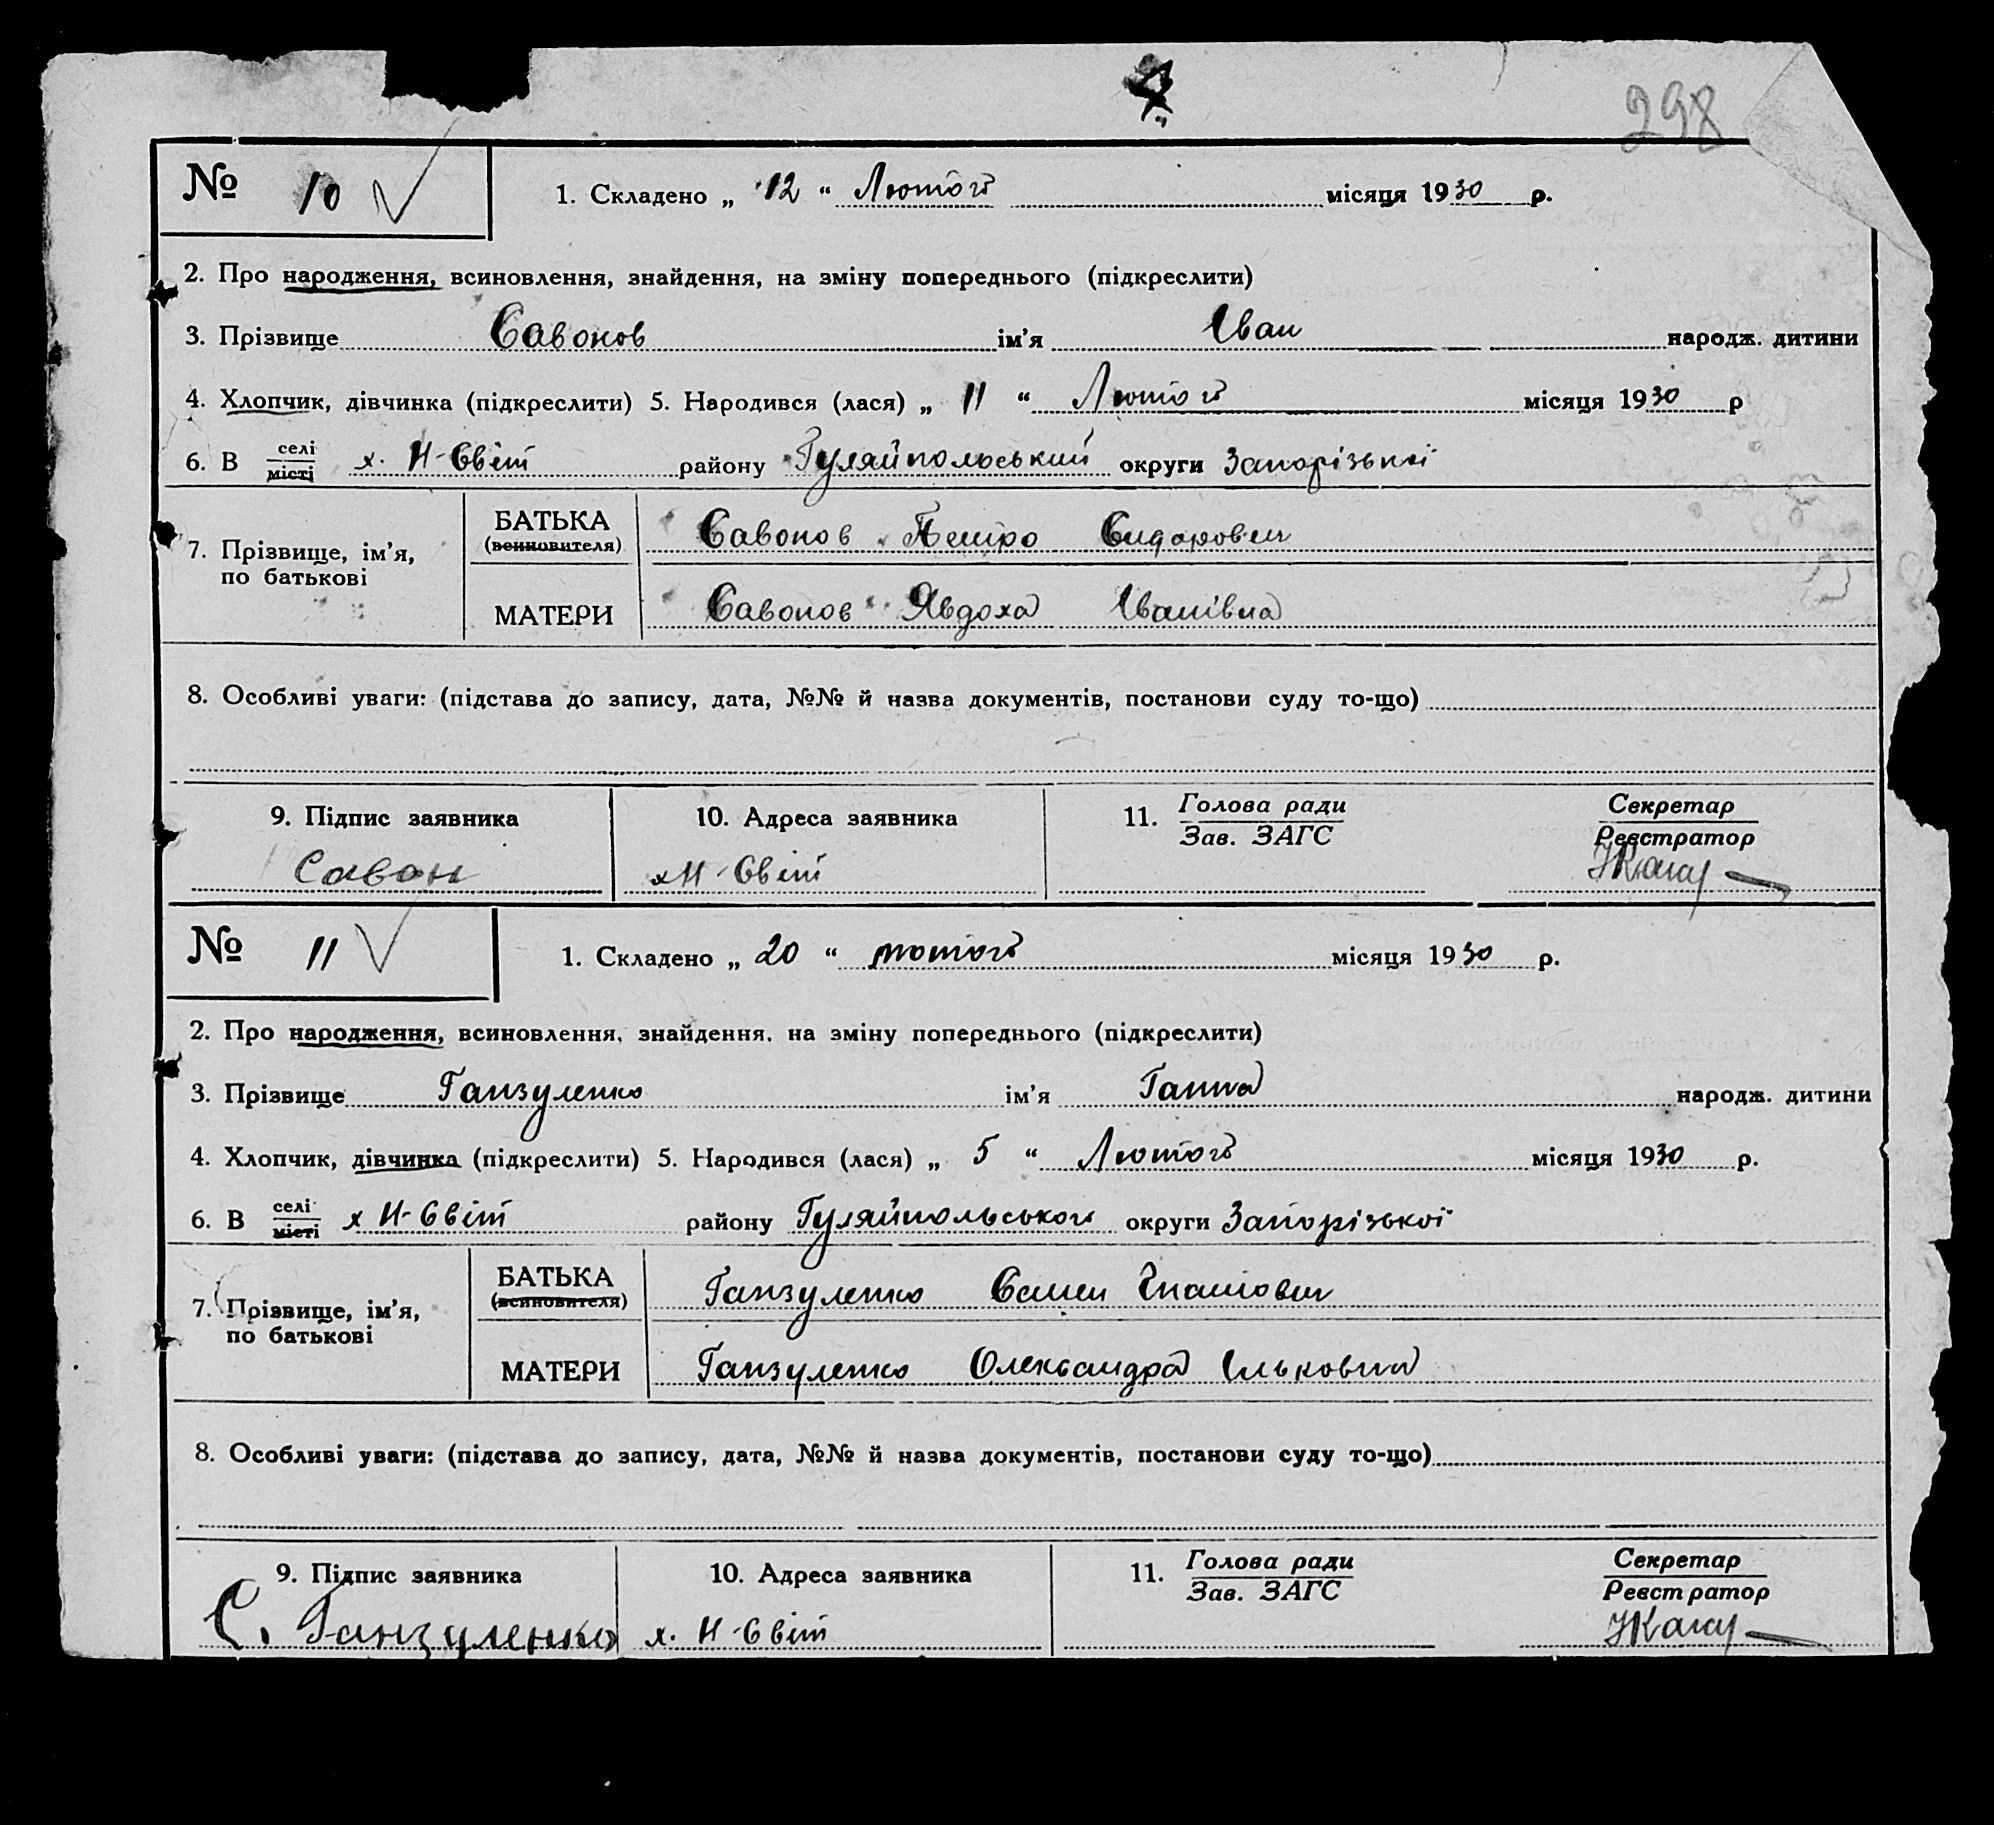 298
№ 10 1. Складено „ 12 “ Лютого місяця 1930 р.
2. Про народження, всиновлення, знайдення, на зміну попереднього (підкреслити)
3. Прізвище Савонов ім'я Іван народж. дитини
4. Хлопчик, дівчинка (підкреслити) 5. Народився (лася) „ 11 “ Лютого місяця 1930 р
6. В селі місті х. Н-Світ району Гуляйпольський округи Запорізької
7. Прізвище, ім'я, по батькові
БАТЬКА (всиновителя) Савонов Петро Сидорович
МАТЕРИ Савонов Явдоха Іванівна
8. Особливі уваги: (підстава до запису, дата, №№ й назва документів, постанови суду то-що)
9. Підпис заявника 10. Адреса заявника 11. Голова ради Зав. ЗАГС Секретар Реєстратор
Савон х Н-Світ
№ 11 1. Складено „ 20 “ лютого місяця 1930 р.
2. Про народження, всиновлення, знайдення, на зміну попереднього (підкреслити)
3. Прізвище Ганзуленко ім'я Ганна народж. дитини
4. Хлопчик, дівчинка (підкреслити) 5. Народився (лася) „ 5 “ Лютого місяця 1930 р.
6. В селі місті х Н-Світ району Гуляйпольського округи Запорізької
7. Прізвище, ім'я, по батькові
БАТЬКА (всиновителя) Ганзуленко Семен Гнатович
МАТЕРИ Ганзуленко Олександра Ільковна
8. Особливі уваги: (підстава до запису, дата, №№ й назва документів, постанови суду то-що)
9. Підпис заявника 10. Адреса заявника 11. Голова ради Зав. ЗАГС Секретар Реєстратор
С. Ганзуленко х. Н-Світ